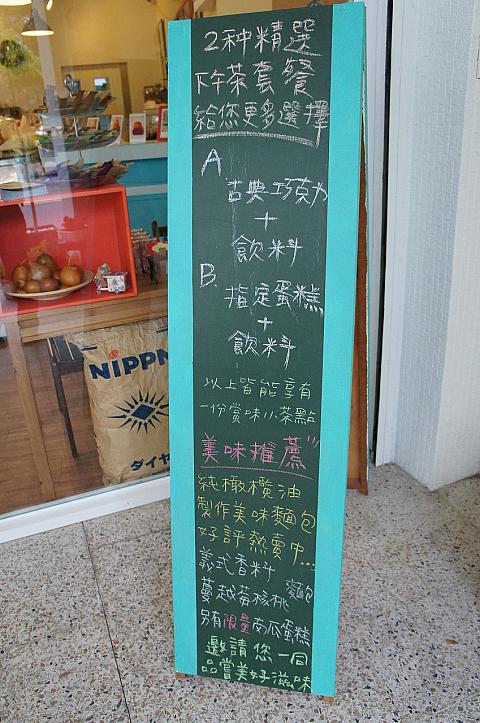 2种精選
下午茶套餐
給您更多選擇
A
古典巧克力
+
飲料
B.
指定蛋糕
+
飲料
以上皆能享有
一份賞味小茶點
美味推薦"
純橄欖油
製作美味麵包
好評熱賣中...
義式香料
蔓越莓核桃 麵包
另有限量南瓜蛋糕
邀請您一同
品嘗美好滋味
NIPPN
ダイヤ